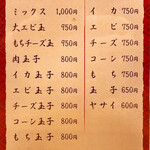 ミックス 1,000円
大エビ玉 950円
もちチーズ玉 950円
肉玉子 800円
イカ玉子 800円
エビ玉子 800円
チーズ玉子 800円
コーン玉子 800円
もち玉子 800円
イカ 750円
エビ 750円
チーズ 750円
コーン 750円
もち 750円
玉子 650円
ヤサイ 600円